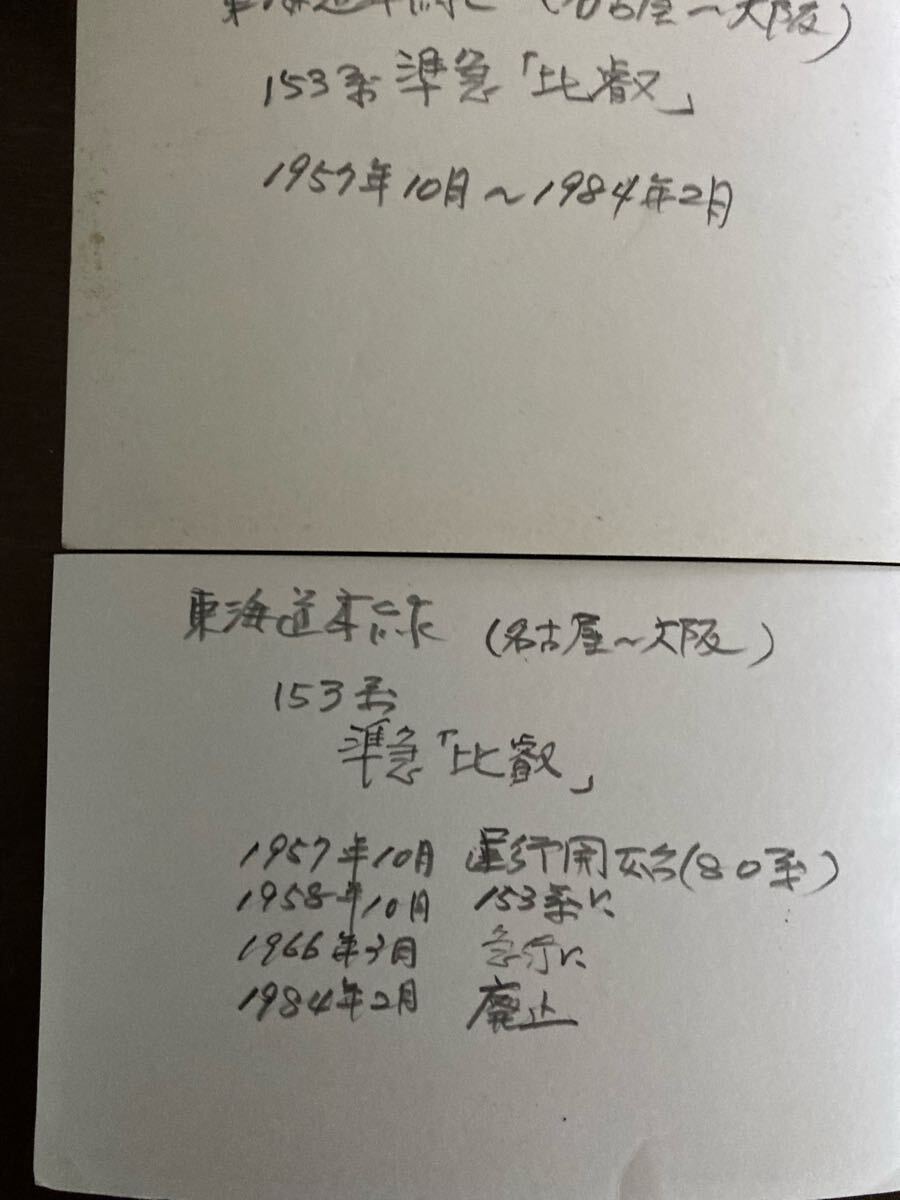 東海道本線 (名古屋〜大阪)
153系 準急「比叡」
1957年10月〜1984年2月
東海道本線 (名古屋〜大阪)
153系
準急「比叡」
1957年10月 運行開始(80系)
1958年10月 153系に
1966年3月 急行に
1984年2月 廃止